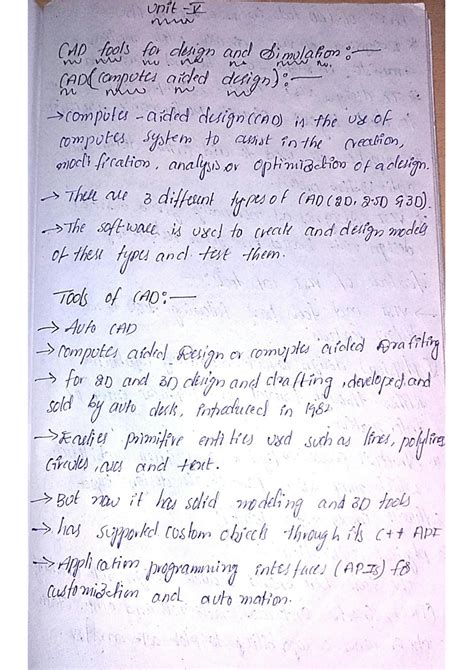 Unit - V
CAD tools for design and Simulation:-
CAD (computer aided design):-
→ computer - aided design (CAD) is the use of
computer system to assist in the creation,
modification, analysis or optimization of a design.
→ There are 3 different types of CAD (2D, 2.5D & 3D).
→ The software is used to create and design models
of these types and test them.
Tools of CAD:-
→ Auto CAD
→ computer aided Design or comupter aided Drafting
→ for 2D and 3D design and drafting, developed and
sold by auto desk, introduced in 1982
→ Earlier primitive entities used such as lines, polylines,
circules, arcs and text.
→ But now it has solid modeling and 3D tools
→ has supported custom objects through its C++ API
→ Application programming interfaces (APIs) for
customization and automation.